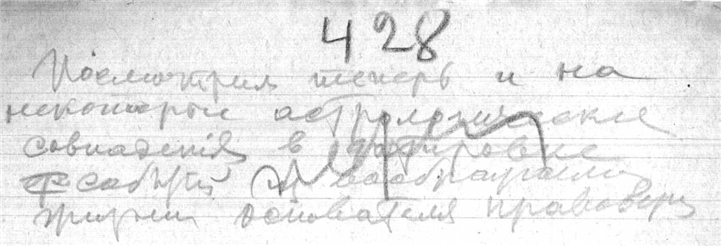 428
Посмотрим теперь и на
некоторые астрологические
совпадения в датировке
событий из воображаемой
жизни основателя правоверия